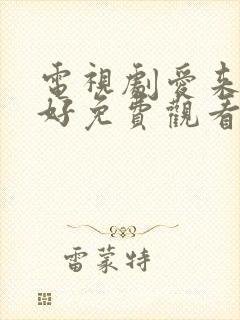 電視劇愛來
好免費觀看
雷蒙特